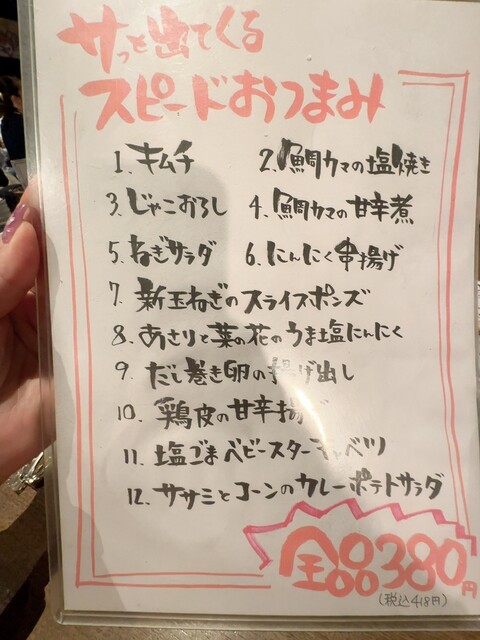 サっと出てくる
スピードおつまみ
1. キムチ 2. 鯛カマの塩焼き
3. じゃこおろし 4. 鯛カマの甘辛煮
5. ねぎサラダ 6. にんにく串揚げ
7. 新玉ねぎのスライスポンズ
8. あさりと菜の花のうま塩にんにく
9. だし巻き卵の揚げ出し
10. 鶏皮の甘辛揚げ
11. 塩ごまベビースターキャベツ
12. ササミとコーンのカレーポテトサラダ
全品380円
(税込418円)